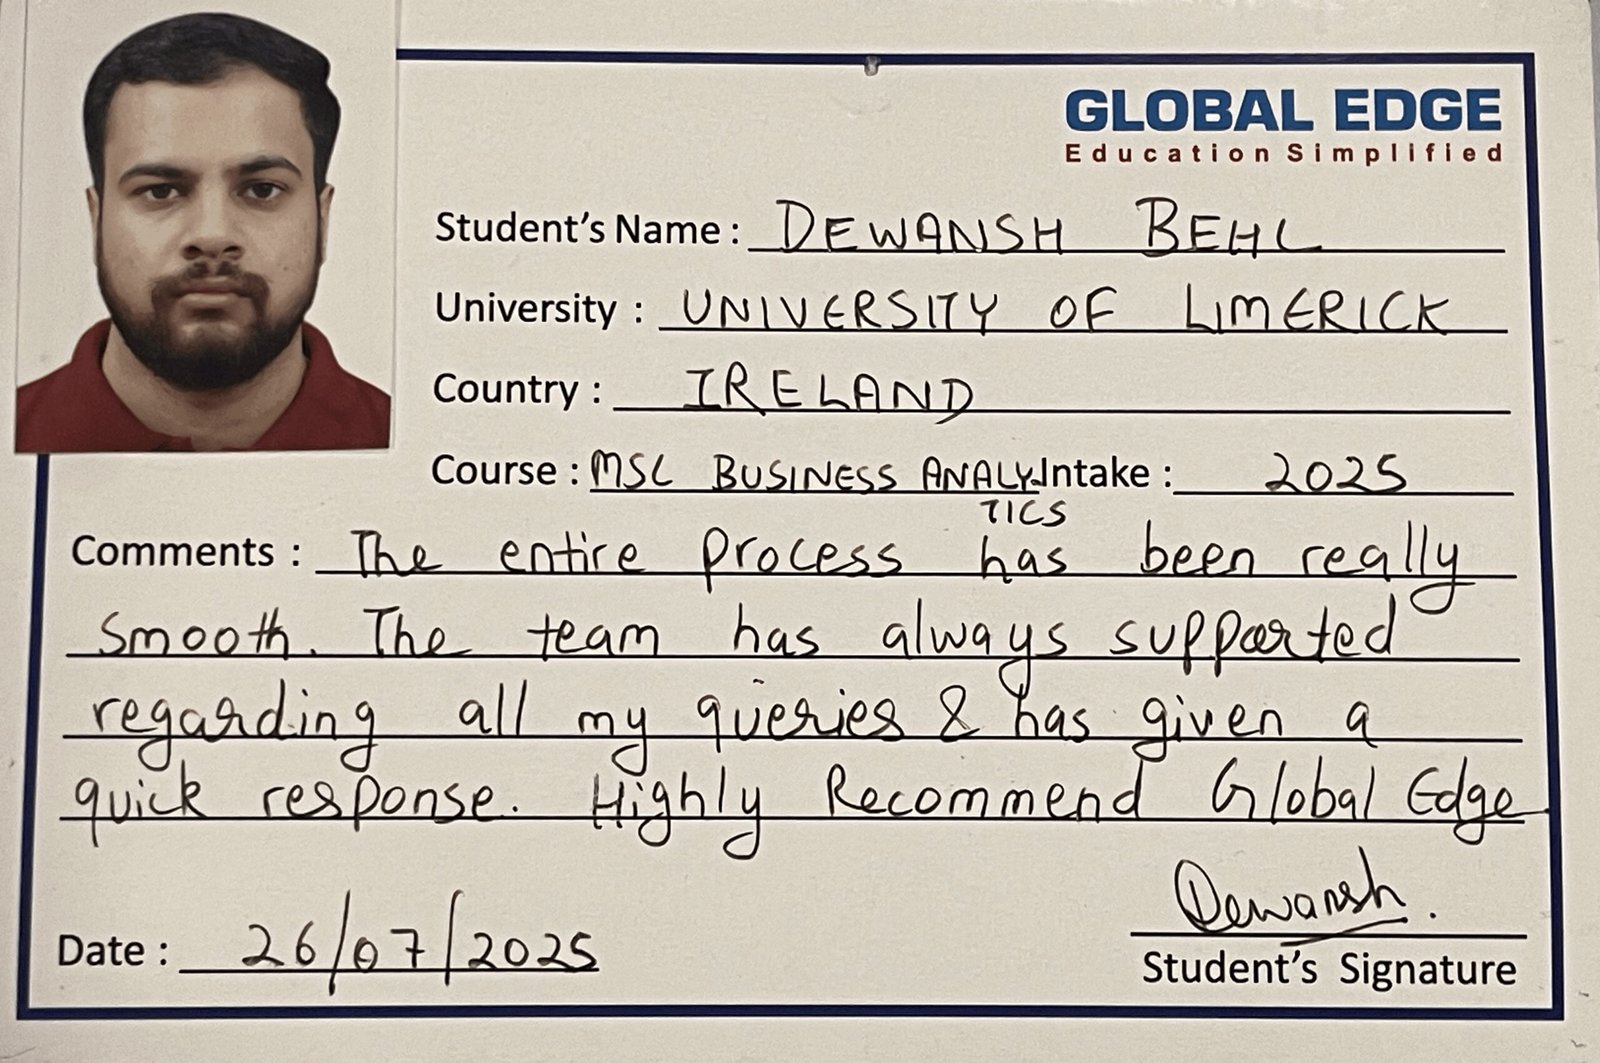 GLOBAL EDGE
Education Simplified
Student's Name : DEWANSH BEHL
University : UNIVERSITY OF LIMERICK
Country : IRELAND
Course : MSC BUSINESS ANALY Intake : 2025
TICS
Comments : The entire process has been really
smooth. The team has always supported
regarding all my queries & has given a
quick response. Highly Recommend Global Edge
Dewansh.
Date : 26/07/2025
Student's Signature